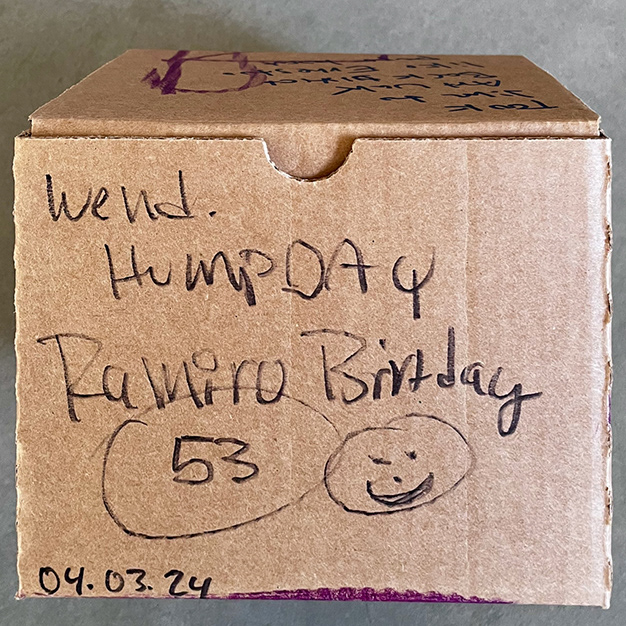 TOOK
wend.
HumpDAy
Ramiro Birtday
53
04.03.24